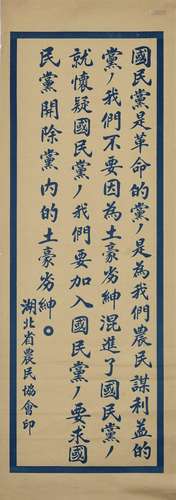 國民黨是革命的黨，是為我們農民謀利益的
黨，我們不要因為土豪劣紳混進了國民黨，
就懷疑國民黨，我們要加入國民黨，要求國
民黨開除黨內的土豪劣紳。
湖北省農民協會印